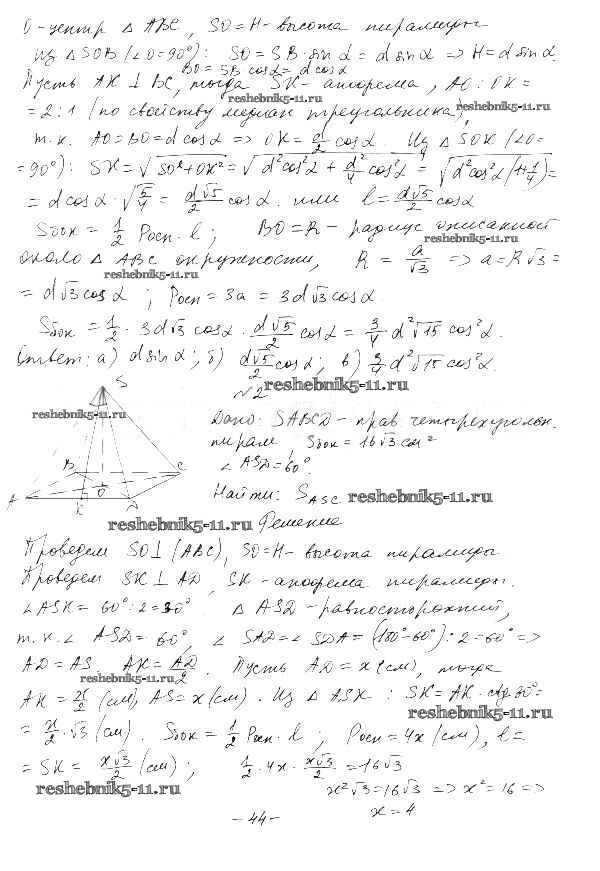 O - центр △ ABC, SO = H - высота пирамиды
Из △ SOB (∠O = 90°): SO = SB · sin α = d sin α ⇒ H = d sin α.
BO = SB cos α = d cos α
Пусть AK ⊥ BC, тогда SK - апофема, AO : OK =
reshebnik5-11.ru
= 2 : 1 (по свойству медиан треугольника),
reshebnik5-11.ru
т.к. AO = BO = d cos α ⇒ OK = d/2 cos α. Из △ SOK (∠O =
= 90°): SK = √(SO² + OK²) = √(d² cos² α + d²/4 cos² α) = √(d² cos² α (1 + 1/4)) =
= d cos α · √(5/4) = d√5/2 cos α. или l = d√5/2 cos α
Sбок = 1/2 Pосн · l; BO = R - радиус описанной
reshebnik5-11.ru
около △ ABC окружности, R = a/√3 ⇒ a = R√3 =
reshebnik5-11.ru
= d√3 cos α; Pосн = 3a = 3d√3 cos α.
Sбок = 1/2 · 3d√3 cos α · d√5/2 cos α = 3/4 d² √15 cos² α.
Ответ: а) d sin α; б) d√5/2 cos α; в) 3/4 d² √15 cos² α.
№2
reshebnik5-11.ru
S
reshebnik5-11.ru
Дано: SABCD - прав. четырехугольн.
пирам., Sбок = 16√3 см²
∠ ASD = 60°.
B
C
O
A
K
D
Найти: S ASC
reshebnik5-11.ru
reshebnik5-11.ru
Решение
Проведем SO ⊥ (ABC), SO = H - высота пирамиды
Проведем SK ⊥ AD, SK - апофема пирамиды.
∠ ASK = 60° : 2 = 30°. △ ASD - равносторонний,
т.к. ∠ ASD = 60°, ∠ SAD = ∠ SDA = (180° - 60°) : 2 = 60° ⇒
AD = AS, AK = AD/2. Пусть AD = x (см), тогда
reshebnik5-11.ru
AK = x/2 (см), AS = x (см). Из △ ASK: SK = AK · ctg 30° =
reshebnik5-11.ru
= x/2 · √3 (см). Sбок = 1/2 Pосн · l; Pосн = 4x (см), l =
= SK = x√3/2 (см); 1/2 · 4x · x√3/2 = 16√3
reshebnik5-11.ru
x²√3 = 16√3 ⇒ x² = 16 ⇒
x = 4
- 44 -